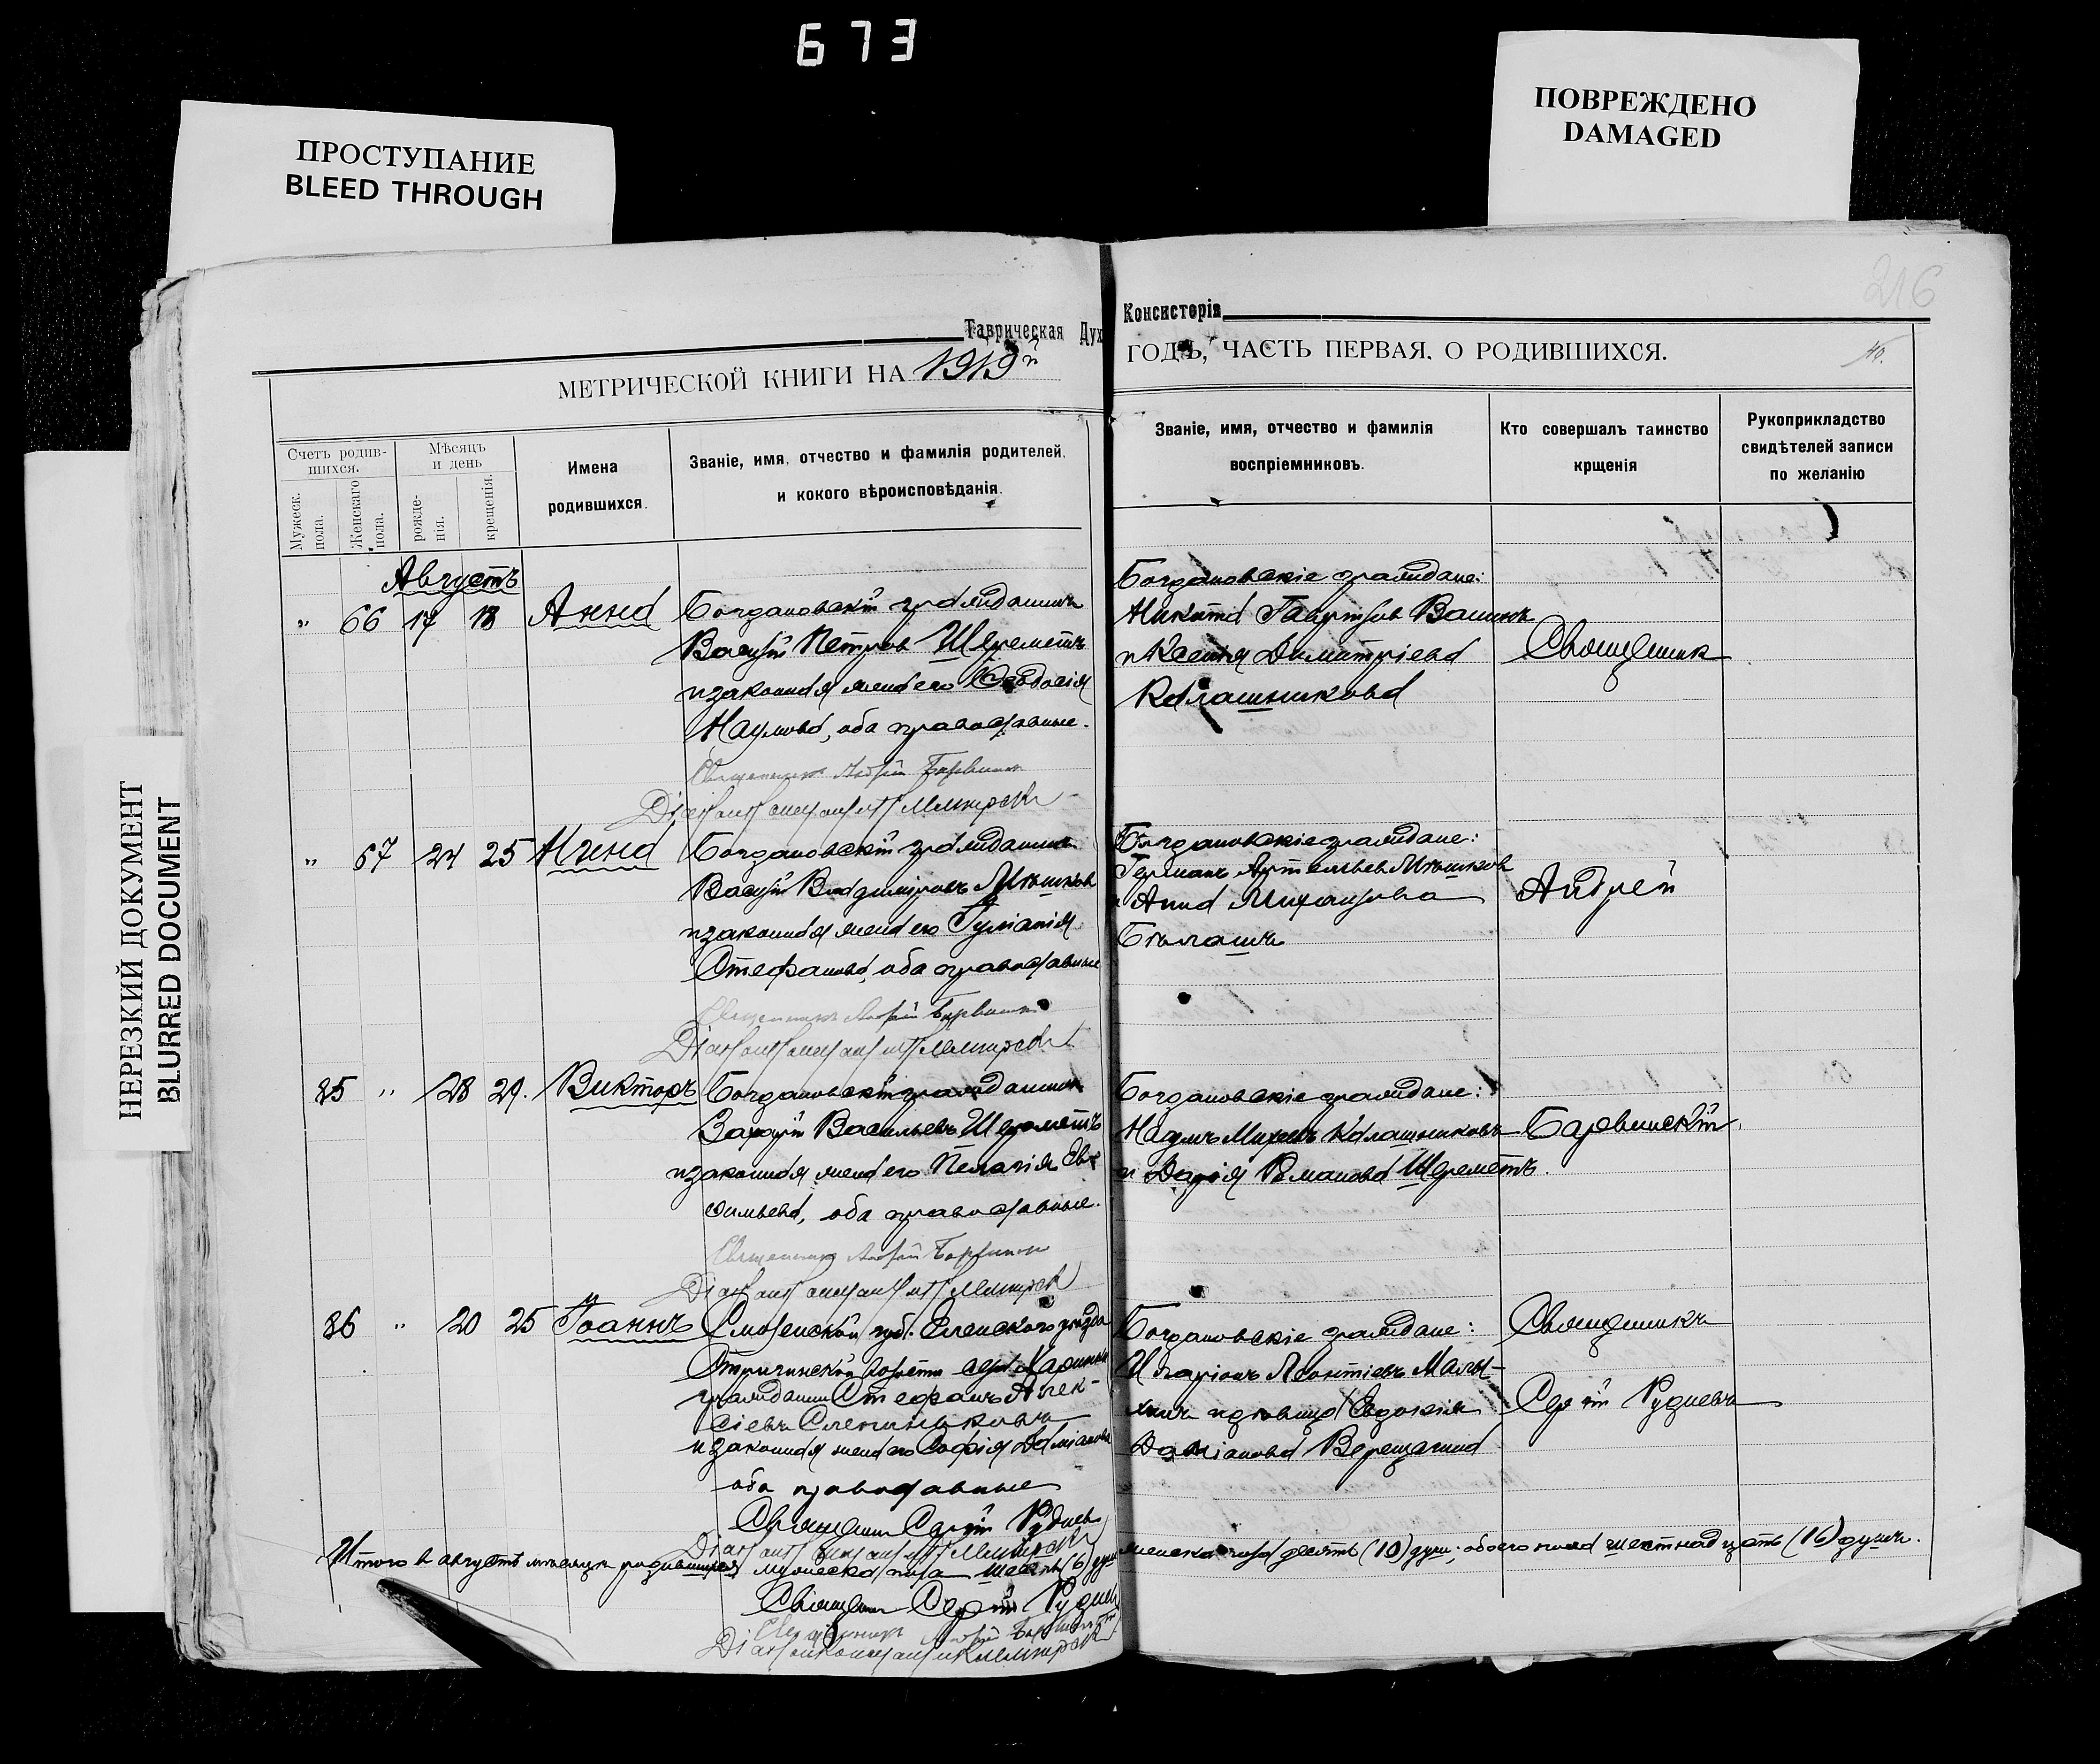 673
ПРОСТУПАНИЕ
BLEED THROUGH
ПОВРЕЖДЕНО
DAMAGED
НЕРЕЗКИЙ ДОКУМЕНТ
BLURRED DOCUMENT
216
Таврическая Дух Консисторія
МЕТРИЧЕСКОЙ КНИГИ НА 1919й ГОДЪ, ЧАСТЬ ПЕРВАЯ. О РОДИВШИХСЯ.
40.
Счетъ родив-
шихся.
Мужеск.
пола.
Женскаго
пола.
Мѣсяцъ
и день
рожде-
нія.
крещенія.
Имена
родившихся.
Званіе, имя, отчество и фамилія родителей,
и кокого вѣроисповѣданія.
Званіе, имя, отчество и фамилія
воспріемниковъ.
Кто совершалъ таинство
крщенія
Рукоприкладство
свидѣтелей записи
по желанію
Августъ
" 66 17 18 Анна
Богдановскій гражданинъ
Василій Петровъ Шереметъ
и законная жена его Ѳеодосія
Наумова, оба православные.
Священникъ Андрей Барвинскій
Богдановскіе граждане:
Никита Гавриловъ
и Ксенія Димитріева
Калашникова
Священник
" 67 24 25 Нина
Богдановскій гражданинъ
Василій Владиміровъ Мяшковъ
и законная жена его Гуліанія
Стефанова, оба православные
Священникъ Андрей Барвинскій
Богдановскіе граждане:
Германъ
и Анна Михайлова
Бѣлашъ
Андрей
85 " 28 29. Викторъ
Богдановскій гражданинъ
Захарій Васильевъ Шереметъ
и законная жена его Пелагія Ев-
оба православные.
Священникъ Андрей Барвинскій
Богдановскіе граждане:
Наумъ Калашниковъ
и Дарія Романова Шереметъ.
Барвинскій.
86 " 20 25 Іоаннъ
Смоленской губ. Еленского уѣзда
гражданинъ Стефанъ Алек-
сіевъ
и законная жена его Софія Даміанова
оба православные
Священник Сергій Рудневъ
Богдановскіе граждане:
Иларіонъ Леонтіевъ Малы-
и дѣвица Евдокія
Даміанова Верещагина
Священникъ
Сергій Рудневъ
Итого в августѣ мѣсяцѣ родившихся мужеска пола шесть (6) душ женска пола десять (10) душ; обоего пола шестнадцать (16) душъ.
Священник Сергій Рудневъ
Священникъ Андрей Барвинскій